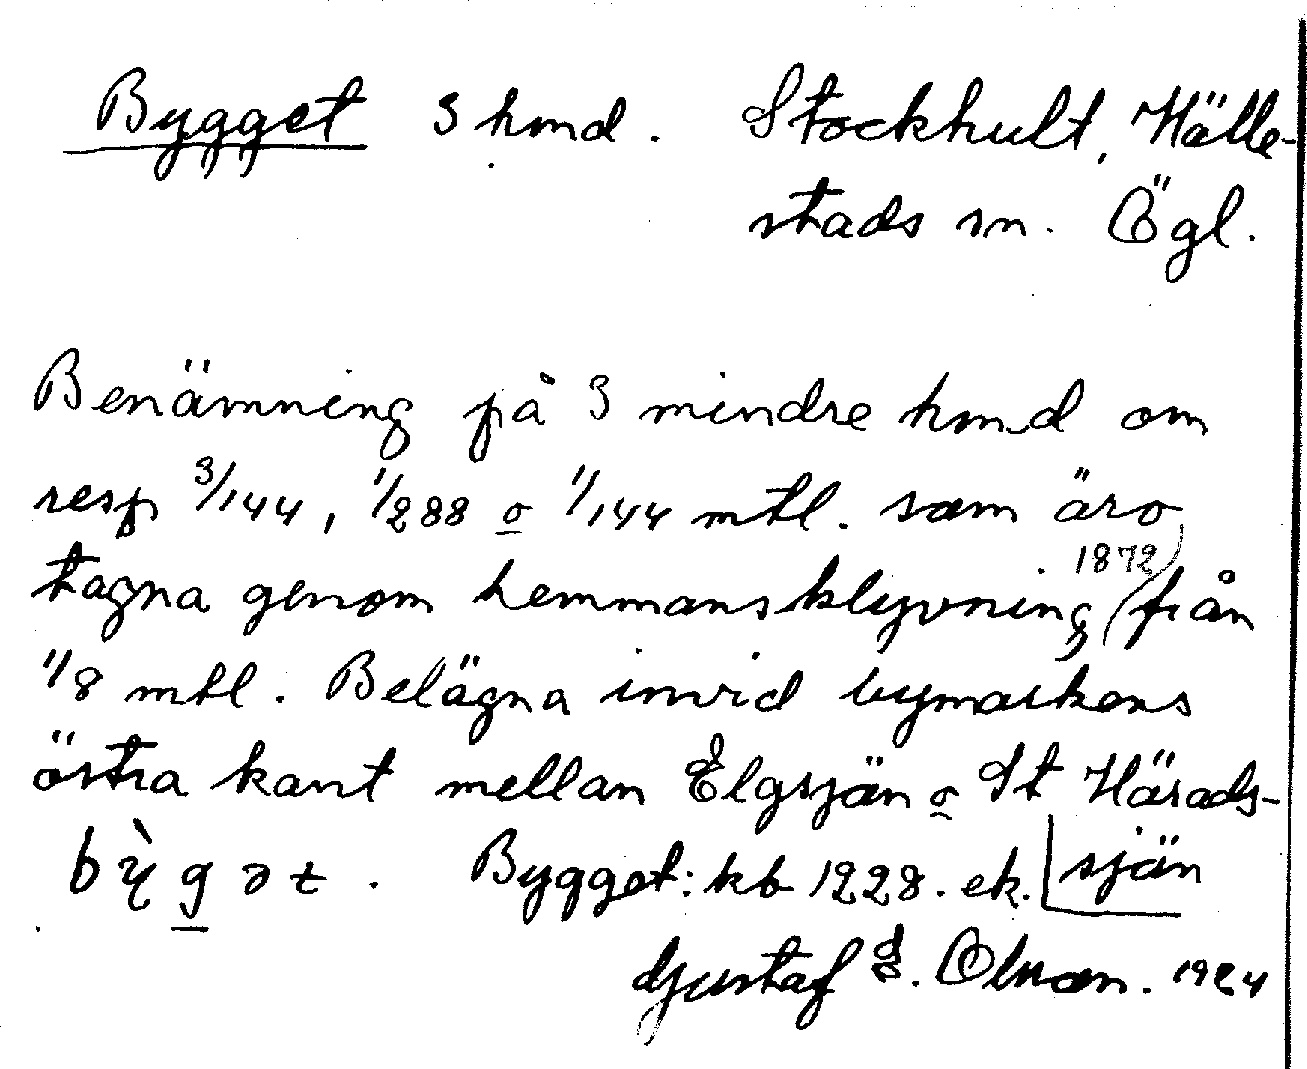 Bygget 3 hmd. Stockhult, Hälle-
stads sn. Ögl.
Benämning på 3 mindre hmd om
resp 3/144, 1/288 o 1/144 mtl. som äro
tagna genom hemmansklyvning (1872) från
1/8 mtl. Belägna invid bymarkens
östra kant mellan Elgsjön o St Härads-
sjön
bỳgət. Bygget: kb 1228. ek.
Gustaf E. Olsson. 1924